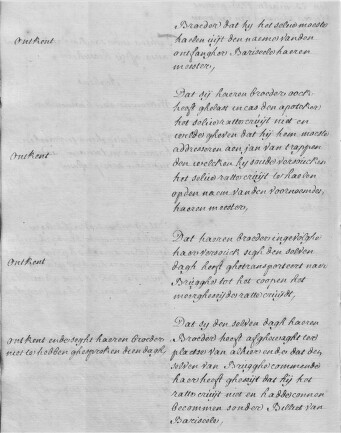 Broeder dat hy het selve moeste
haelen uijt den naeme van den
ontfangher Bariseele haeren
meester,
ontkent
Dat sij haeren broeder oock
heeft ghelast in cas den apoteker
het selve rattecruijt niet en
wilde gheven dat hy hem moeste
addresseren aen jan van trappen
den welcken hy soude versoucken
het selve rattecruijt te haelen
op den naem van den voornoemden
haeren meester,
ontkent
Dat haeren broeder ingevolghe
haer versouck sigh den selven
dagh heeft ghetransporteert naer
Brugghe tot het coopen het
meergheseijde rattecruijdt,
ontkent
Dat sy den selven dagh haeren
Broeder heeft afghewaght ter
plaetse van alhier ende dat den
selven van Brugghe commende
haer heeft gheseijt dat hij het
rattecruijt niet en hadde connen
becommen sonder Billiet van
Bariseele,
ontkent ende seght haeren broeder
niet te hebben ghesproken dien dagh